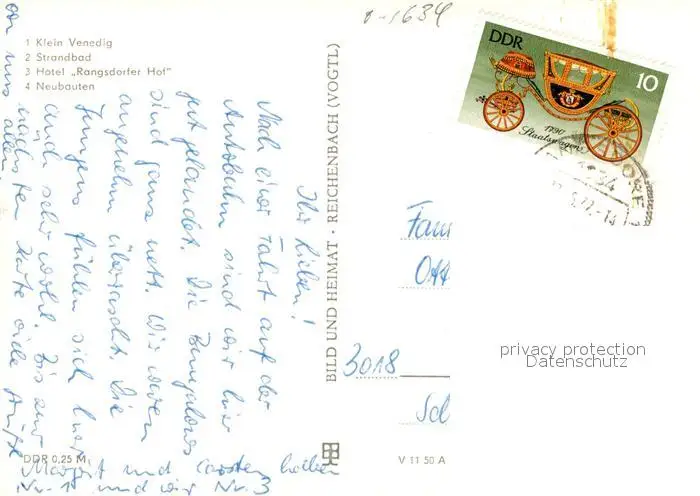 1 Klein Venedig
2 Strandbad
3 Hotel „Rangsdorfer Hof"
4 Neubauten
Ihr Lieben!
Nach einer Fahrt auf der
Autobahn sind wir hier
gut gelandet. Die Bungalows
sind ganz nett. Wir waren
angenehm überrascht. Die
Jungens fühlen sich hier
auch sehr wohl. Bis zur
nächsten Karte viele Grüße
von uns allen
Margrit und Carsten haben
Nr. 1 und wir Nr. 3
DDR 0,25 M
BILD UND HEIMAT · REICHENBACH (VOGTL)
V 11 50 A
DDR
10
1790
Staatswagen
1634
Fam
Ott
3018
Sch
privacy protection
Datenschutz